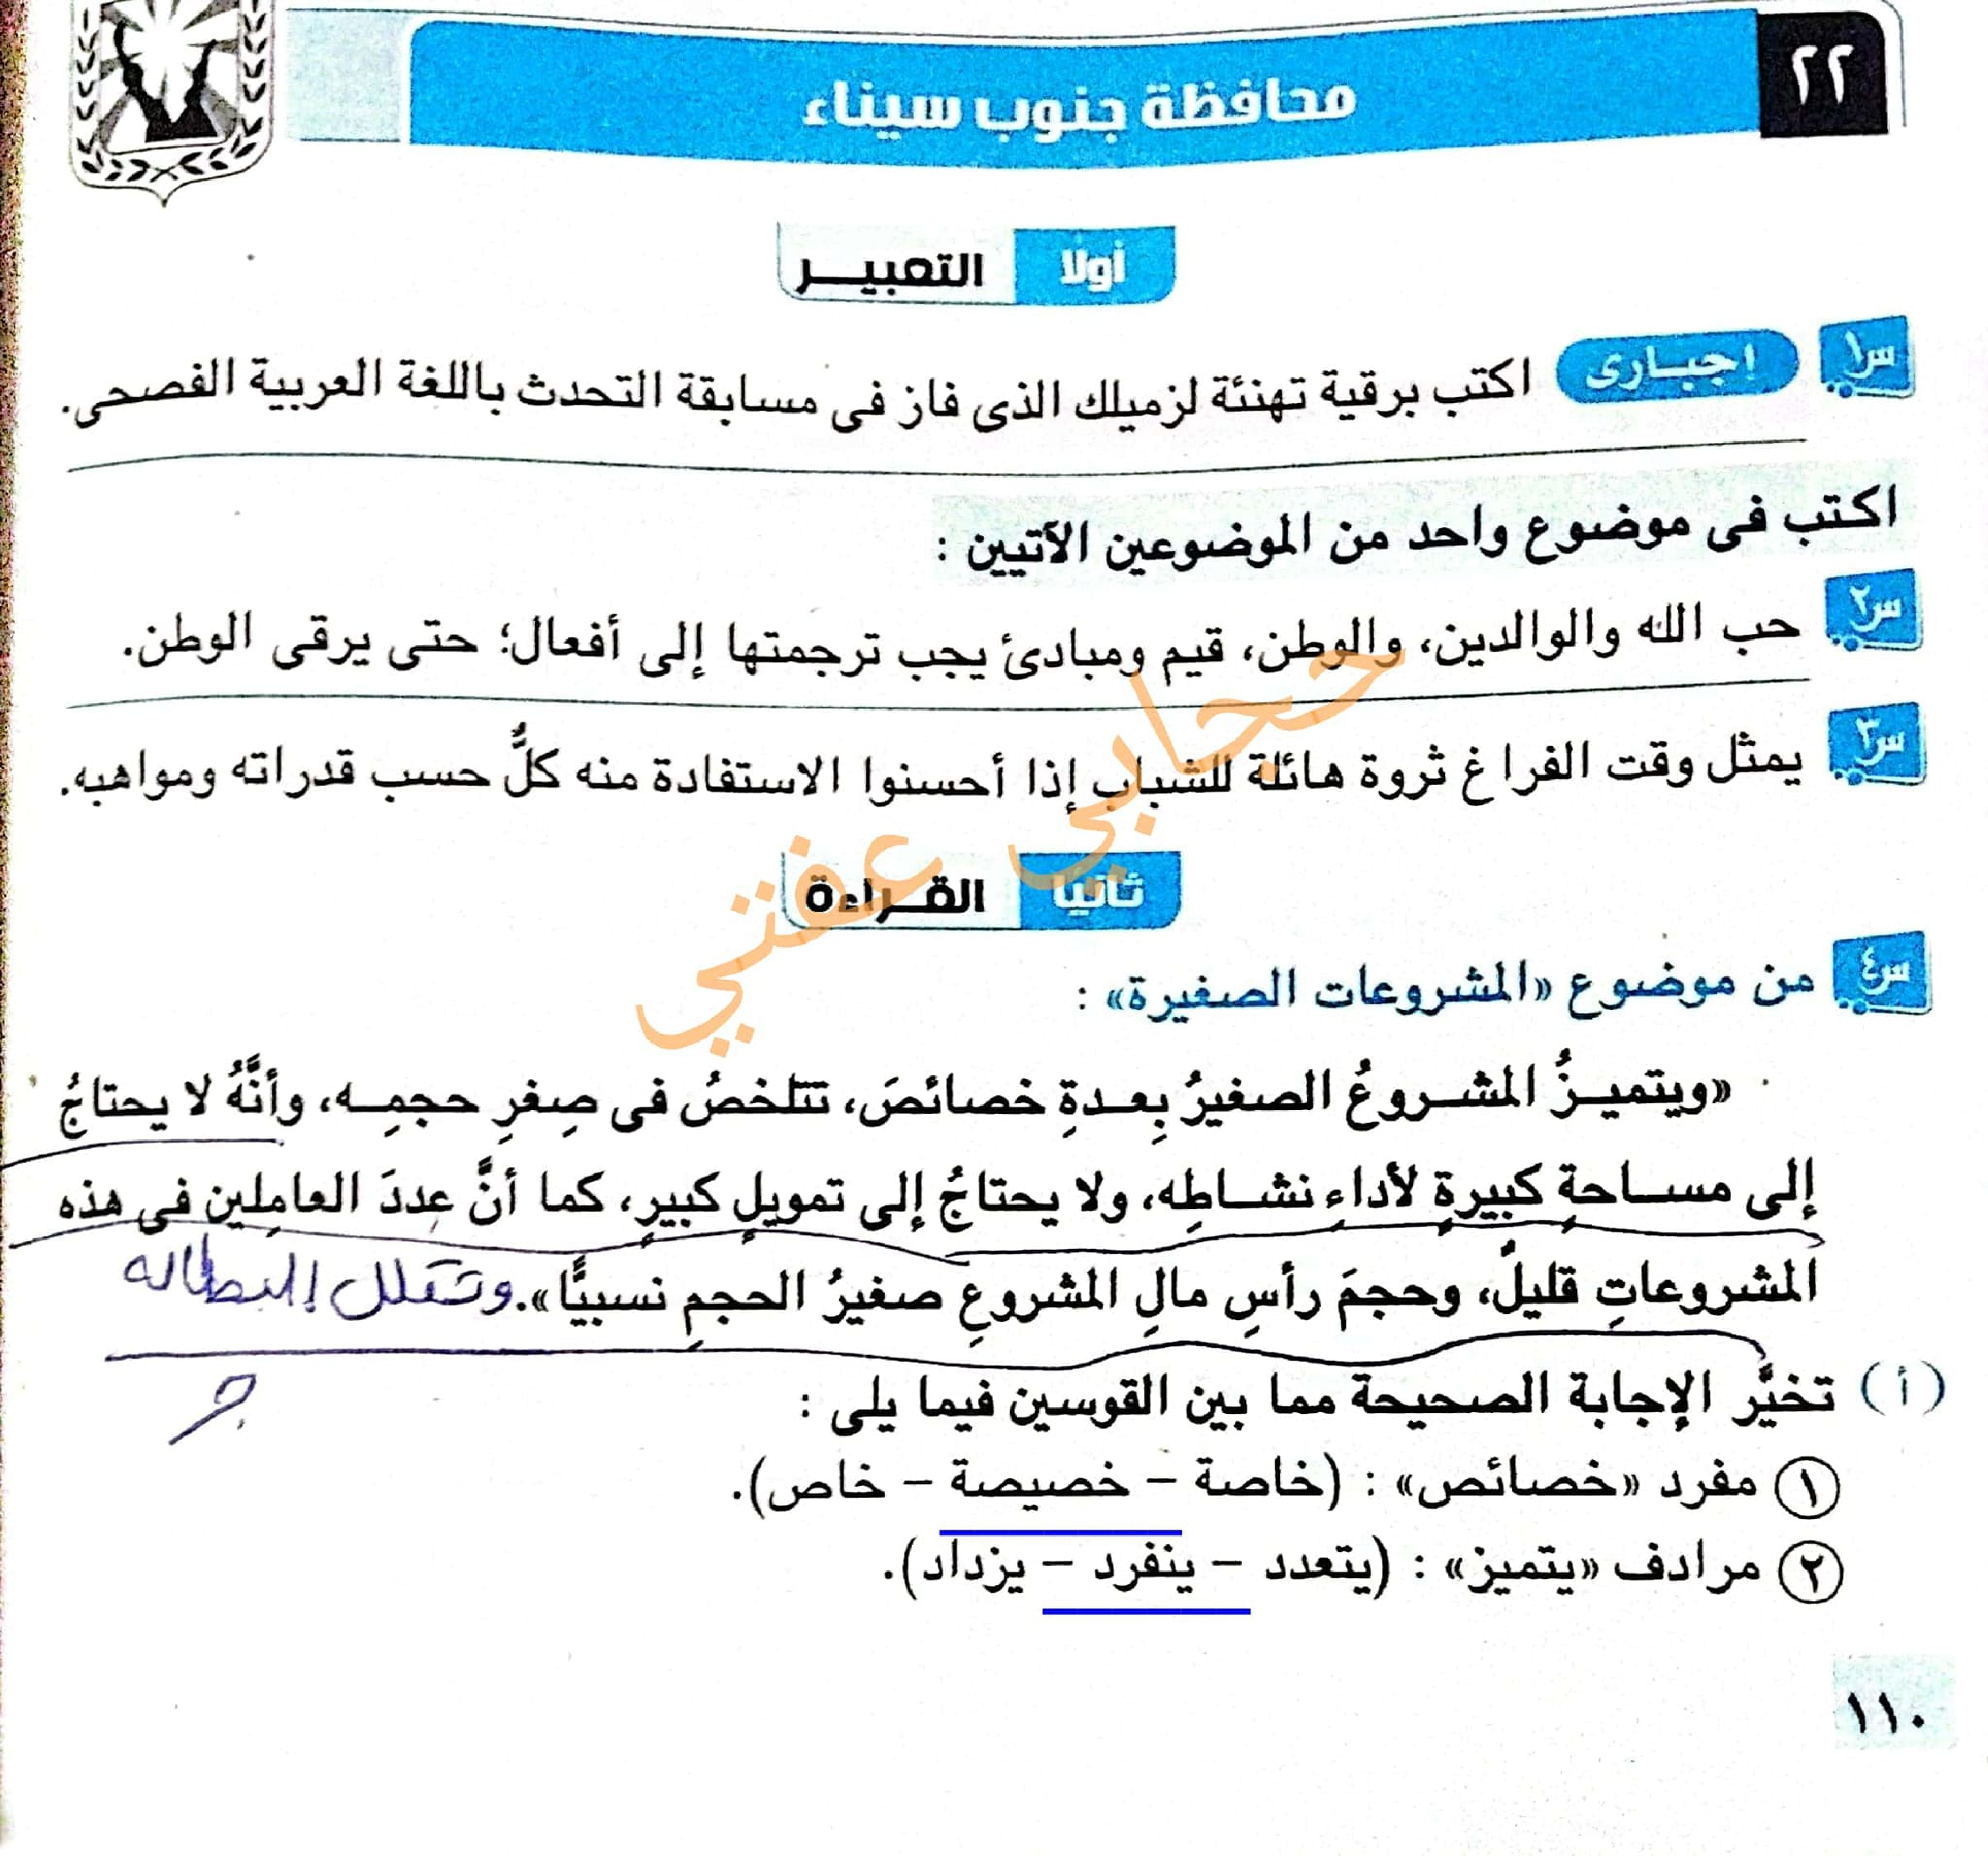 ٢٢
محافظة جنوب سيناء
أولا التعبيـــر
س١ إجبـارى اكتب برقية تهنئة لزميلك الذى فاز فى مسابقة التحدث باللغة العربية الفصحى.
اكتب فى موضوع واحد من الموضوعين الآتيين :
س٢ حب الله والوالدين، والوطن، قيم ومبادئ يجب ترجمتها إلى أفعال؛ حتى يرقى الوطن.
س٣ يمثل وقت الفراغ ثروة هائلة للشباب إذا أحسنوا الاستفادة منه كلٌّ حسب قدراته ومواهبه.
حجابي عفتي
ثانيًا القــراءة
س٤ من موضوع «المشروعات الصغيرة» :
«ويتميـزُ المشـروعُ الصغيرُ بِعـدةِ خصائصَ، تتلخصُ فى صِغرِ حجمِـه، وأنَّهُ لا يحتاجُ
إلى مسـاحةٍ كبيرةٍ لأداءِ نشـاطِه، ولا يحتاجُ إلى تمويلٍ كبيرٍ، كما أنَّ عددَ العامِلين فى هذه
المشروعاتِ قليلٌ، وحجمَ رأسِ مالِ المشروعِ صغيرُ الحجمِ نسبيًّا». وتقلل البطاله
جـ
(أ) تخيَّر الإجابة الصحيحة مما بين القوسين فيما يلى :
١ مفرد «خصائص» : (خاصة – خصيصة – خاص).
٢ مرادف «يتميز» : (يتعدد – ينفرد – يزداد).
١١٠